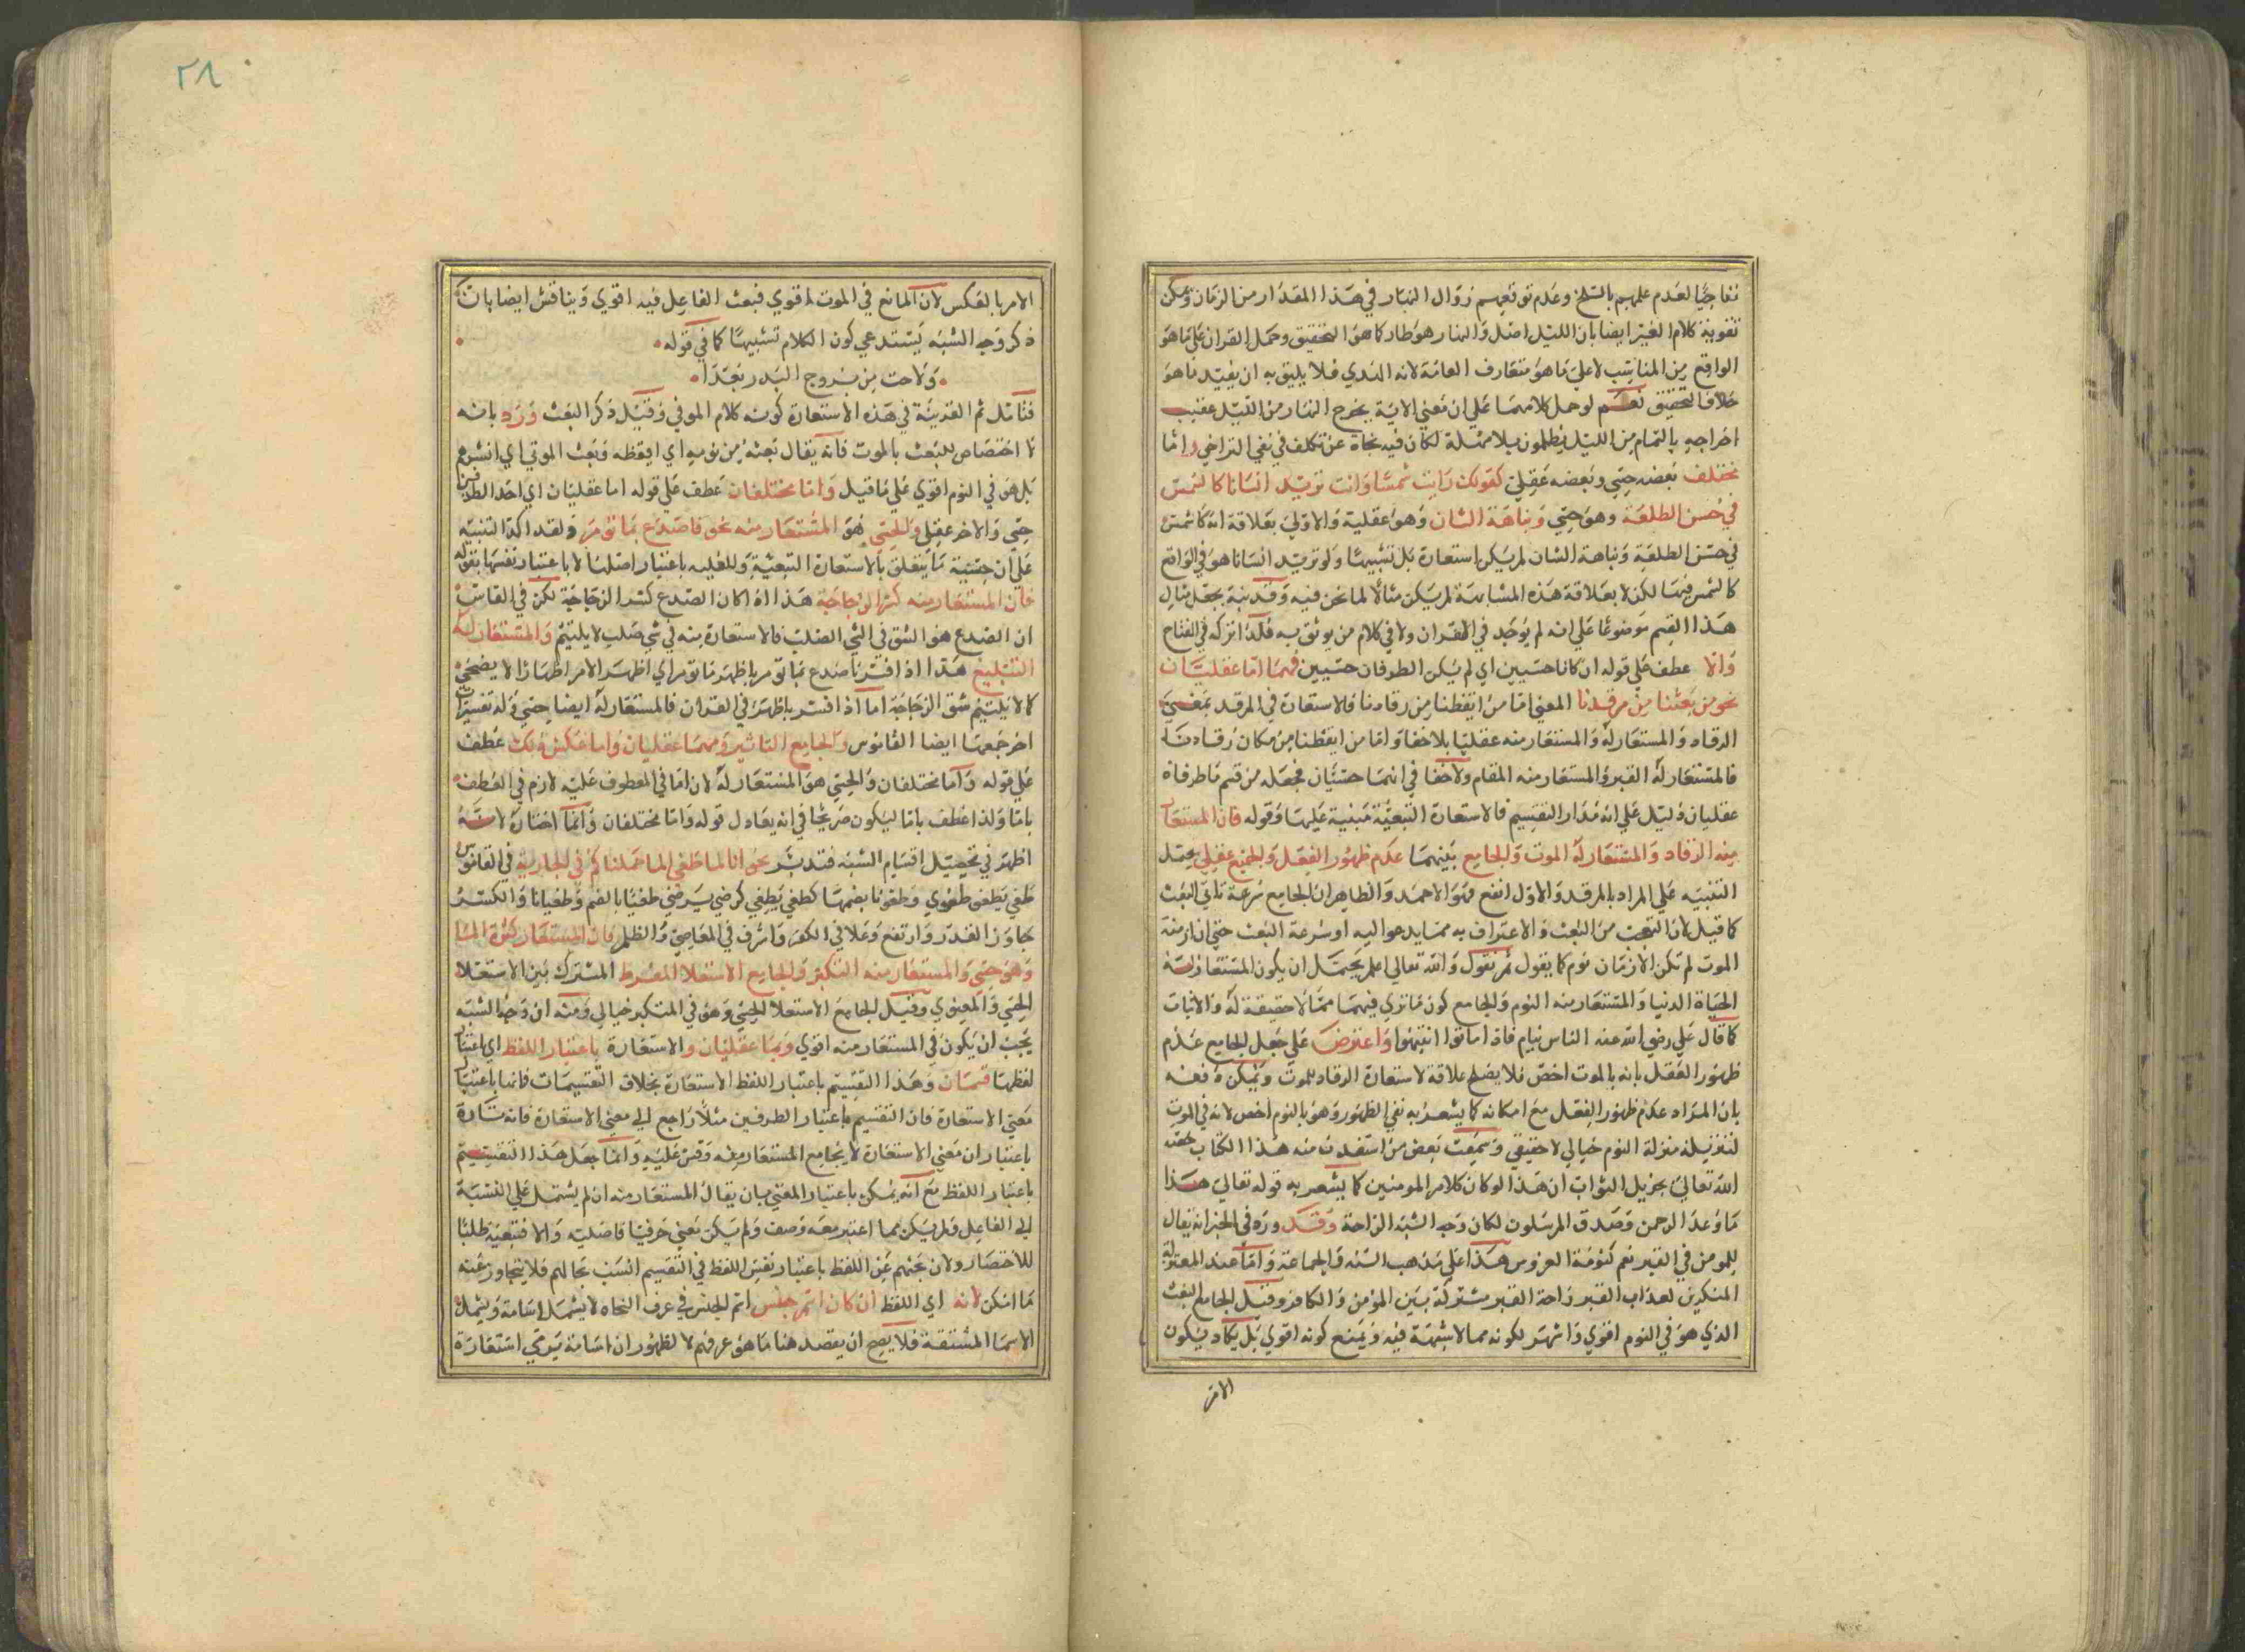 تفاجيًا لعدم علمهم بالسلخ وعدم توقعهم زوال النهار في هذا المقدار من الزمان ويمكن
تقوية كلام الغير ايضا بان الليل اصل والنهار هو طار كما هو التحقيق وحمل القران على ما هو
الواقع من المناسب لا على ما هو متعارف العامة لانه الهدي فلا يليق به ان يفيد ما هو
خلاف التحقيق نعم لو حمل كلامهما على ان معنى الاية يخرج النهار من الليل عقيب
اخراجه بالتمام من الليل يظلمون بلا مهلة لكان فيه نجاة عن تكلف في نفي التراخي واما
مختلف بعضه حسي وبعضه عقلي كقولك رايت شمسا وانت تريد انسانا كالشمس
في حسن الطلعة وهو حسي ونباهة الشان وهو عقلية والاولى بعلاقة انه كالشمس
في حسن الطلعة ونباهة الشان لم يكن استعارة بل تشبيها ولو تريد انسانا هو في الواقع
كالشمس فيهما لكن لا بعلاقة هذه المشابهة لم يكن مثالا لما نحن فيه وقد نبه بجعل مثال
هذا القسم موضوعا على انه لم يوجد في القران ولا في كلام من يوثق به فلذا تركه في المفتاح
والا عطف على قوله ان كانا حسيين اي لم يكن الطرفان حسيين فهما اما عقليان
نحو من بعثنا من مرقدنا المعنى اما من ايقظنا من رقادنا فالاستعارة في المرقد بمعنى
الرقاد والمستعار له والمستعار منه عقليا بلا خفا واما من ايقظنا من مكان رقادنا
فالمستعار له القبر والمستعار منه المقام ولا خفا في انهما حسيان فجعله من قسم ما طرفاه
عقليان دليل على انه مدار التقسيم فالاستعارة التبعية مبنية عليها وقوله فان المستعار
منه الرقاد والمستعار له الموت والجامع بينهما عدم ظهور الفعل والجميع عقلي يحتمل
التنبيه على المراد بالمرقد والاول انفع فهو الاحمد والظاهر ان الجامع سرعة تاتي البعث
كما قيل لان التعجب من البعث والاعتراف به مما يدعو اليه او سرعة البعث حتى ان ازمنة
الموت لم تكن الازمان نوم كما يقول ثم نقول والله تعالى اعلم يحتمل ان يكون المستعار له
الحياة الدنيا والمستعار منه النوم والجامع كون ما تري فيهما مما لا حقيقة له ولا اثبات
كما قال علي رضي الله عنه الناس نيام فاذا ماتوا انتبهوا واعترض على جعل الجامع عدم
ظهور الفعل بانه بالموت اخص فلا يصلح علاقة لاستعارة الرقاد للموت ويمكن دفعه
بان المراد عدم ظهور الفعل مع امكانه كما يشعر به نفي الظهور وهو بالنوم اخص لانه في الموت
لتنزيله منزلة النوم خيالي لا حقيقي وسمعت بعض من استفدت منه هذا الكتاب خصه
الله تعالى بجزيل الثواب ان هذا لو كان كلام المومنين كما يشعر به قوله تعالى هذا
ما وعد الرحمن وصدق المرسلون لكان وجه الشبه الراحة وقد ورد في الخبر انه يقال
للمومن في القبر نم كنومة العروس هذا على مذهب السنة والجماعة واما عند المعتزلة
المنكرين لعذاب القبر راحة القبر مشتركة بين المؤمن والكافر وقيل الجامع البعث
الذي هو في النوم اقوي واشهر لكونه مما لا شبهة فيه ويمنع كونه اقوي بل يكاد يكون
الامر
٢٨
الامر بالعكس لان المانع في الموت اقوي فبعث الفاعل فيه اقوي ويناقش ايضا بان
ذكر وجه الشبه يستدعي كون الكلام تشبيها كما في قوله
ولاحت من بروج البدر بعدا
فتامل ثم القرينة في هذه الاستعارة كونه كلام الموتى وقيل ذكر البعث ورد بانه
لا اختصاص للبعث بالموت فانه يقال بعثه من نومه اي ايقظه وبعث الموتى اي انشرهم
بل هو في النوم اقوي على ما قيل واما مختلفان عطف على قوله اما عقليان اي احد الطرفين
حسي والاخر عقلي والحسي هو المستعار منه نحو فاصدع بما تؤمر ولقد اكد التنبيه
على ان حسية ما يتعلق بالاستعارة التبعية وللعلية باعتبار اصلها لا باعتبار نفسها بقوله
فان المستعار منه كسر الزجاجة هذا اذا كان الصدع كسر الزجاجة لكن في القاموس
ان الصدع هو الشق في الشي الصلب فالاستعارة منه في شي صلب لا يلتئم والمستعار له
التبليغ هذا اذا فسر فاصدع بما تؤمر باظهر ما تؤمر اي اظهر الامر اظهارا لا يضمحي
كما لا يلتئم شق الزجاجة اما اذا فسر باظهر في القران فالمستعار له ايضا حسي وله تفسيرات
اخر جمعها ايضا القاموس والجامع التاثير وهما عقليان واما عكس ذلك عطف
على قوله واما مختلفان والحسي هو المستعار له لان اما في المعطوف عليه لازم في العطف
باما ولذا عطف باما ليكون صريحا في انه يعادل قوله واما مختلفان وانما اختاره لانه
اظهر في تحصيل اقسام الشبه فتدبر نحو انا لما طغى الماء حملناكم في الجارية في القاموس
طغي يطغى طغوي وطغونا بضمهما كطغي يطغي كرضي يرضي طغيا بالضم وطغيانا والكسر
جاوز القدر وارتفع وعلا في الكفر واسرف في المعاصي والظلم فان المستعار له كثرة الماء
وهو حسي والمستعار منه التكبر والجامع الاستعلا المفرط المشترك بين الاستعلا
الحسي والمعنوي وقيل الجامع الاستعلا الحسي وهو في المتكبر خيالي ومنه ان وجه الشبه
يجب ان يكون في المستعار منه اقوي وهما عقليان والاستعارة باعتبار اللفظ اي باعتبار
لفظها قسمان وهذا التقسيم باعتبار اللفظ الاستعارة بخلاف التقسيمات فانها باعتبار
معنى الاستعارة فان التقسيم باعتبار الطرفين مثلا راجع الى معنى الاستعارة فانه تارة
باعتبار ان معنى الاستعارة لا يجامع المستعار منه وقس عليه وانما جعل هذا التقسيم
باعتبار اللفظ مع انه يمكن باعتبار المعنى بان يقال المستعار منه ان لم يشتمل على النسبة
الى الفاعل ولم يكن مما اعتبر معه وصف ولم يكن معنى حرفيا فاصلية والا فتبعية طلبا
للاختصار ولان بحثهم عن اللفظ باعتبار نفس اللفظ في التقسيم انسب بحالهم فلا يتجاوز عنه
ما امكن لانه اي اللفظ ان كان اسم جنس اسم الجنس في عرف النحاة لا يشمل اسامة ويشمل
الاسما المشتقة فلا يصح ان يقصد هنا ما هو عرفهم لا لظهور ان اسامة يرمي استعارة